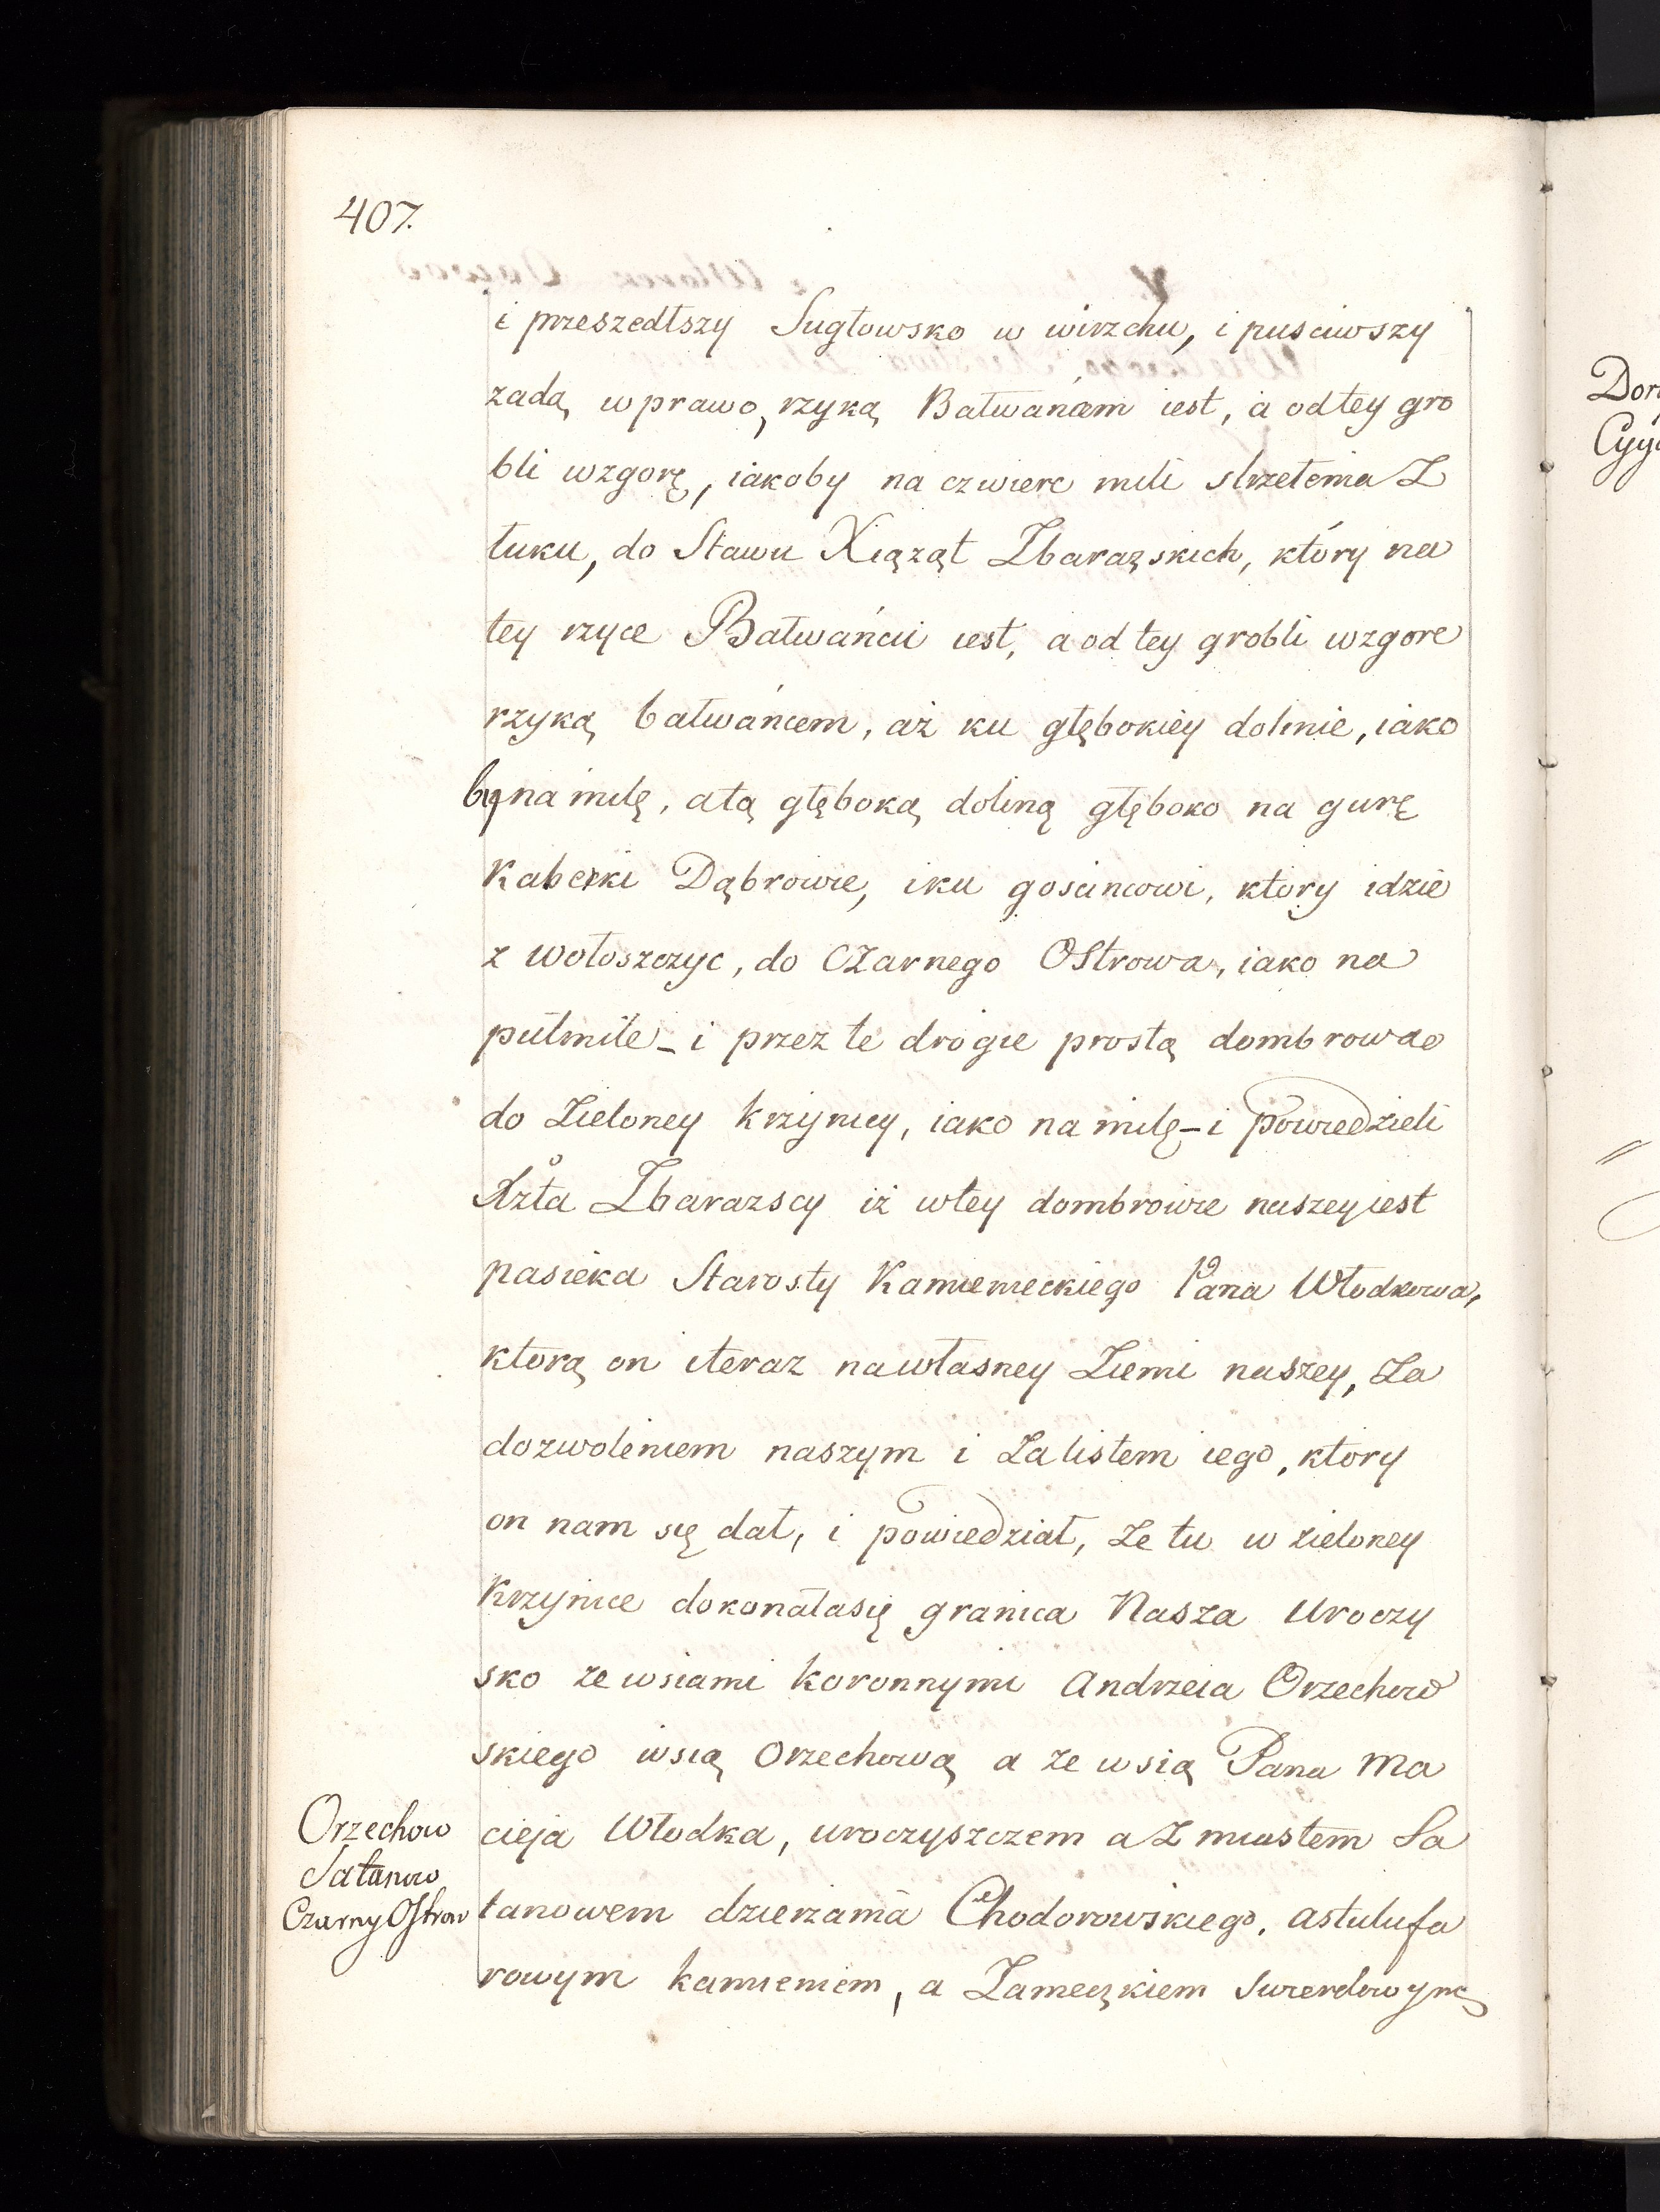 407.
i przeszedłszy Sugłowsko w wirzchu, i pusciwszy
zadą wprawo, rzyką Batwańcem iest, a odtey gro
bli wzgorę, iakoby na czwierc mili strzelenia Z
łuku, do Stawu Xiąząt Zbarazskich, który na
tey rzyce Batwańcu iest, a od tey grobli wzgore
rzyką batwańcem, aż ku głębokiey dolinie, iako
by na milę, atą głęboką doliną głęboko na gurę
Dąbrowie, iku goscincowi, ktory idzie
z Wołoszczyc, do CZarnego OStrowa, iako na
pułmile - i przez te drogie prostą dombrowao
do Zieloney krzynicy, iako na milę - i powiedzieli
Xzta Zbarazscy iż wtey dombrowie naszey iest
pasieka Starosty Kamienieckiego Pana Włodkowa,
ktorą on iteraz nawłasney Ziemi naszey, Za
dozwoleniem naszym i Zalistem iego, ktory
on nam się dał, i powiedział, Ze tu w zieloney
Krzynice dokonałasię granica Nasza Uroczy
sko ze wsiami koronnymi Andrzeia Orzechow
skiego wsią Orzechową a ze wsią Pana Ma
cieja Włodka, uroczyszczem a Z miastem Sa
tanowem dzierzama Chodorowskiego, astulufa
rowym kamieniem, a Zameczkiem
Orzechow
Satanow
Czarny Ostrow
Dor
Cyy